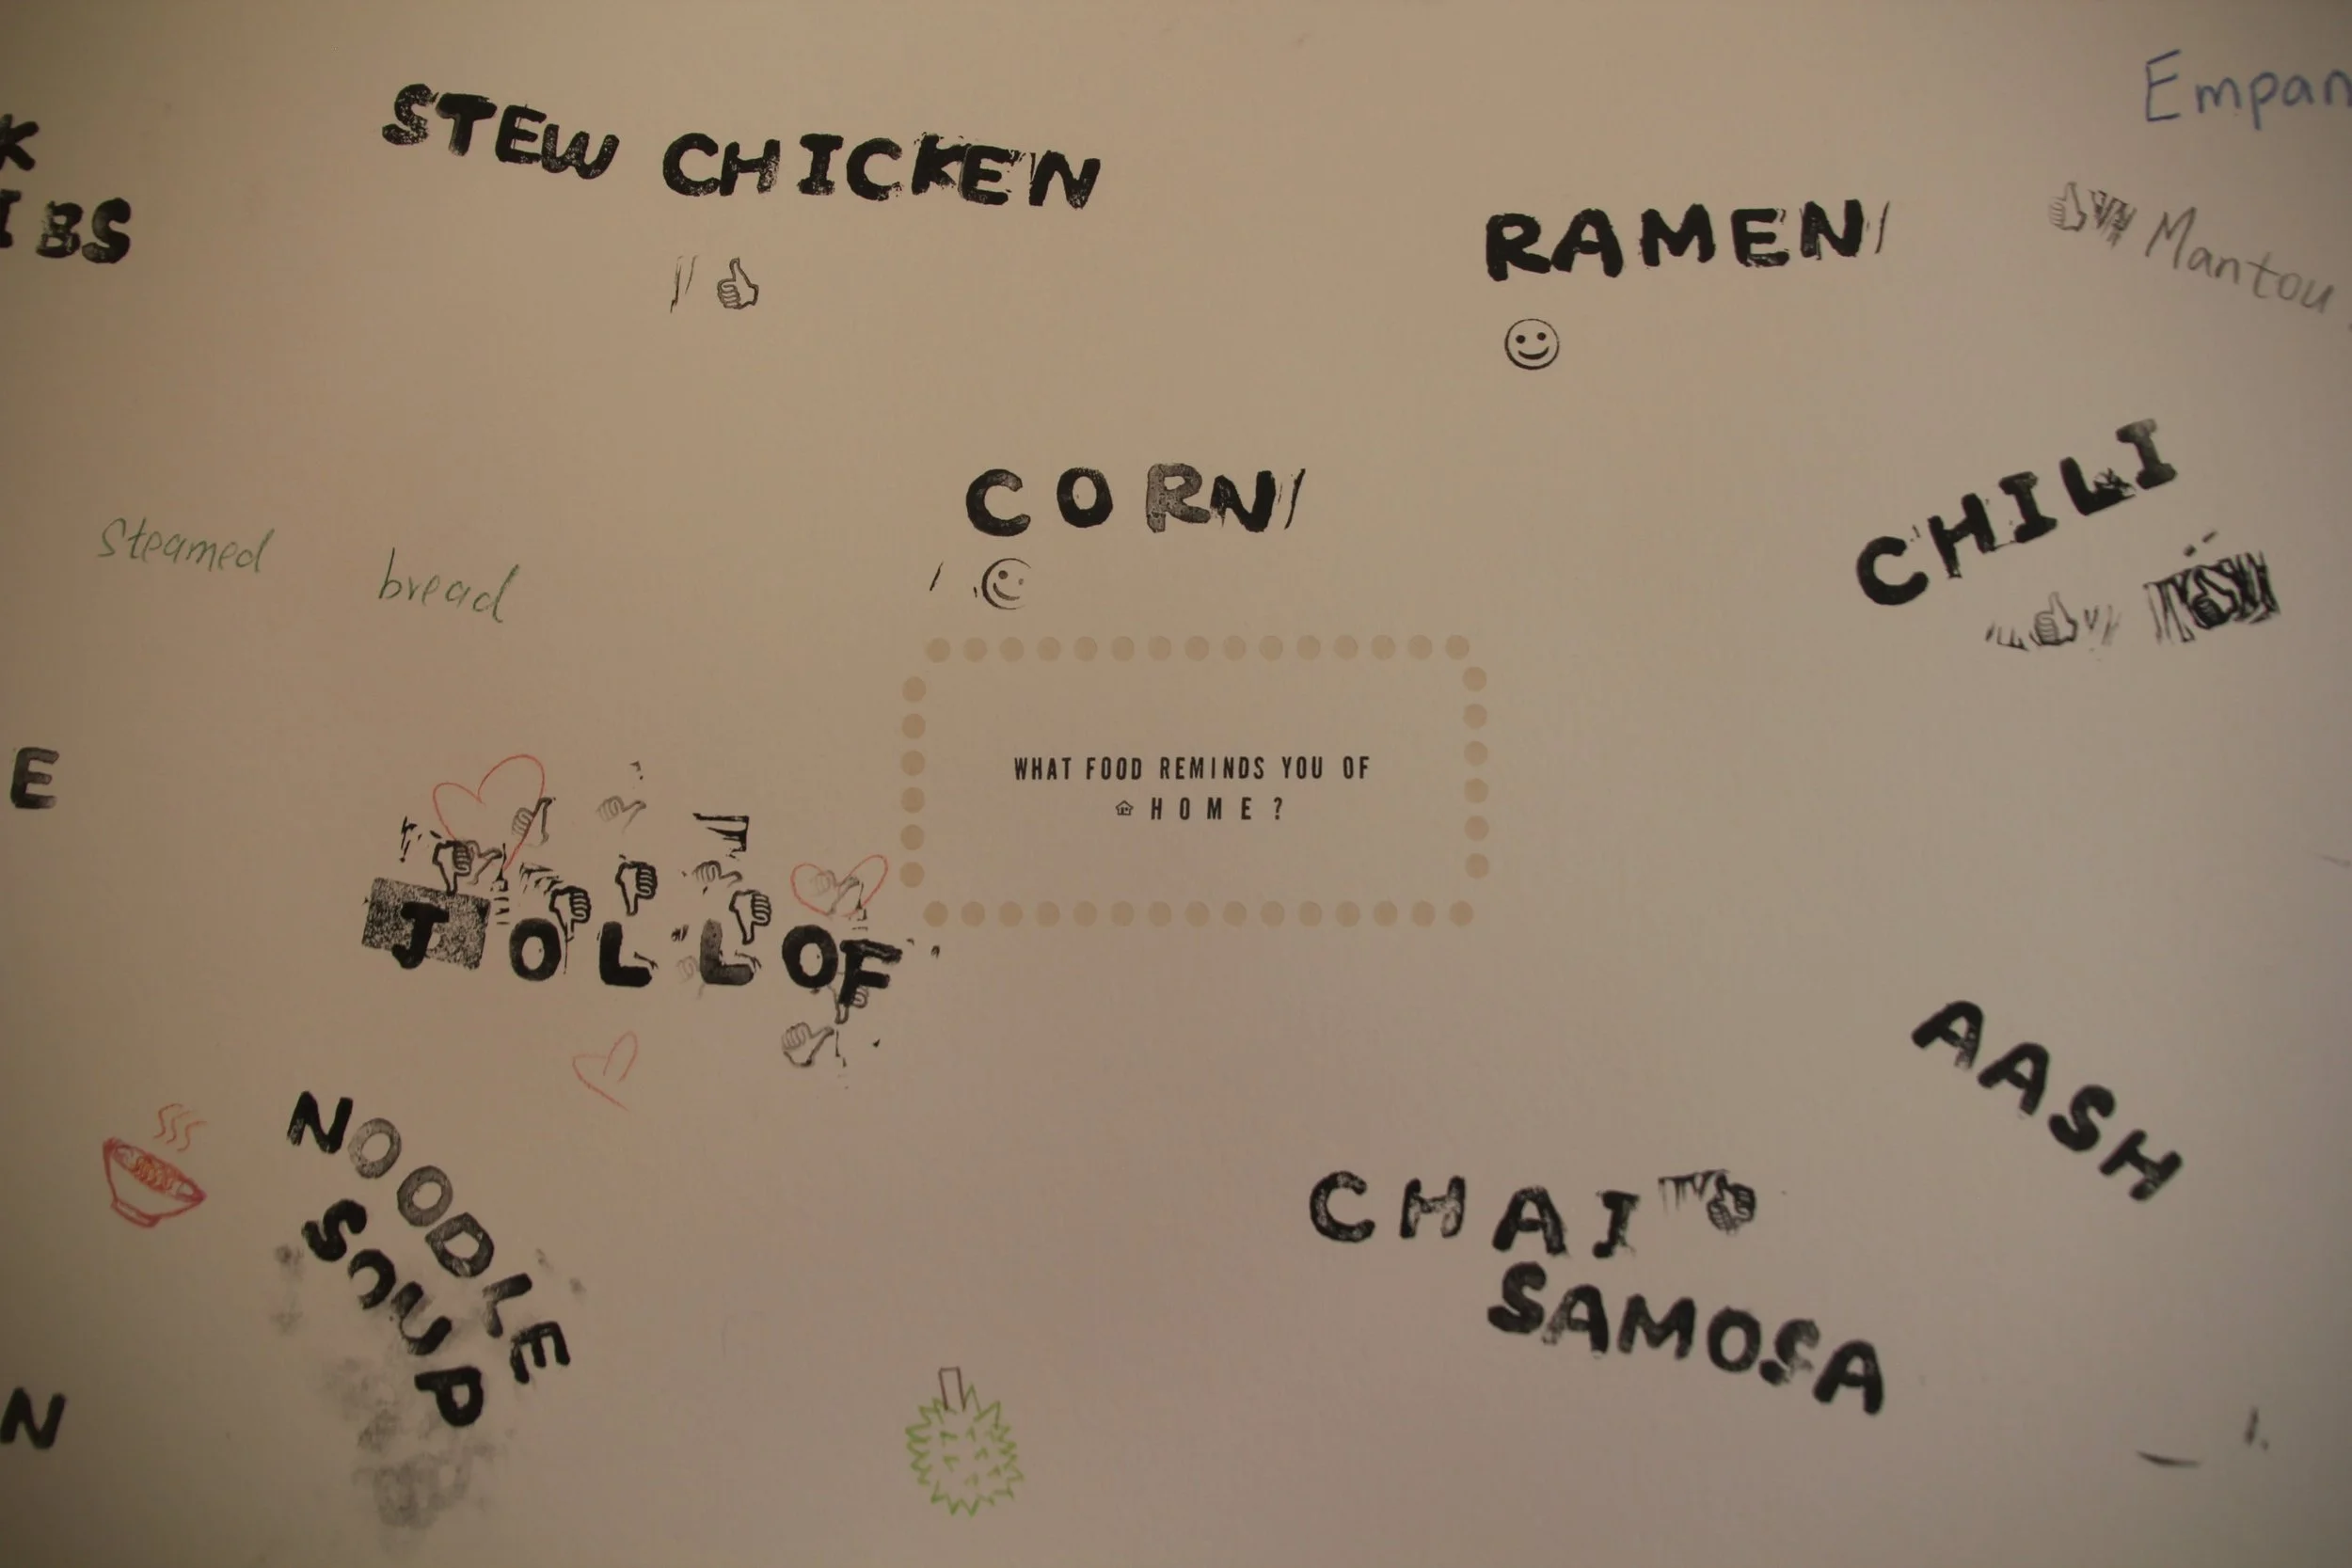 STEW CHICKEN
Empan
K
IBS
RAMEN
Mantou
CORN
CHILI
Steamed bread
WHAT FOOD REMINDS YOU OF
HOME?
E
JOLLOF
AASH
NOODLE
SOUP
CHAI
SAMOSA
N